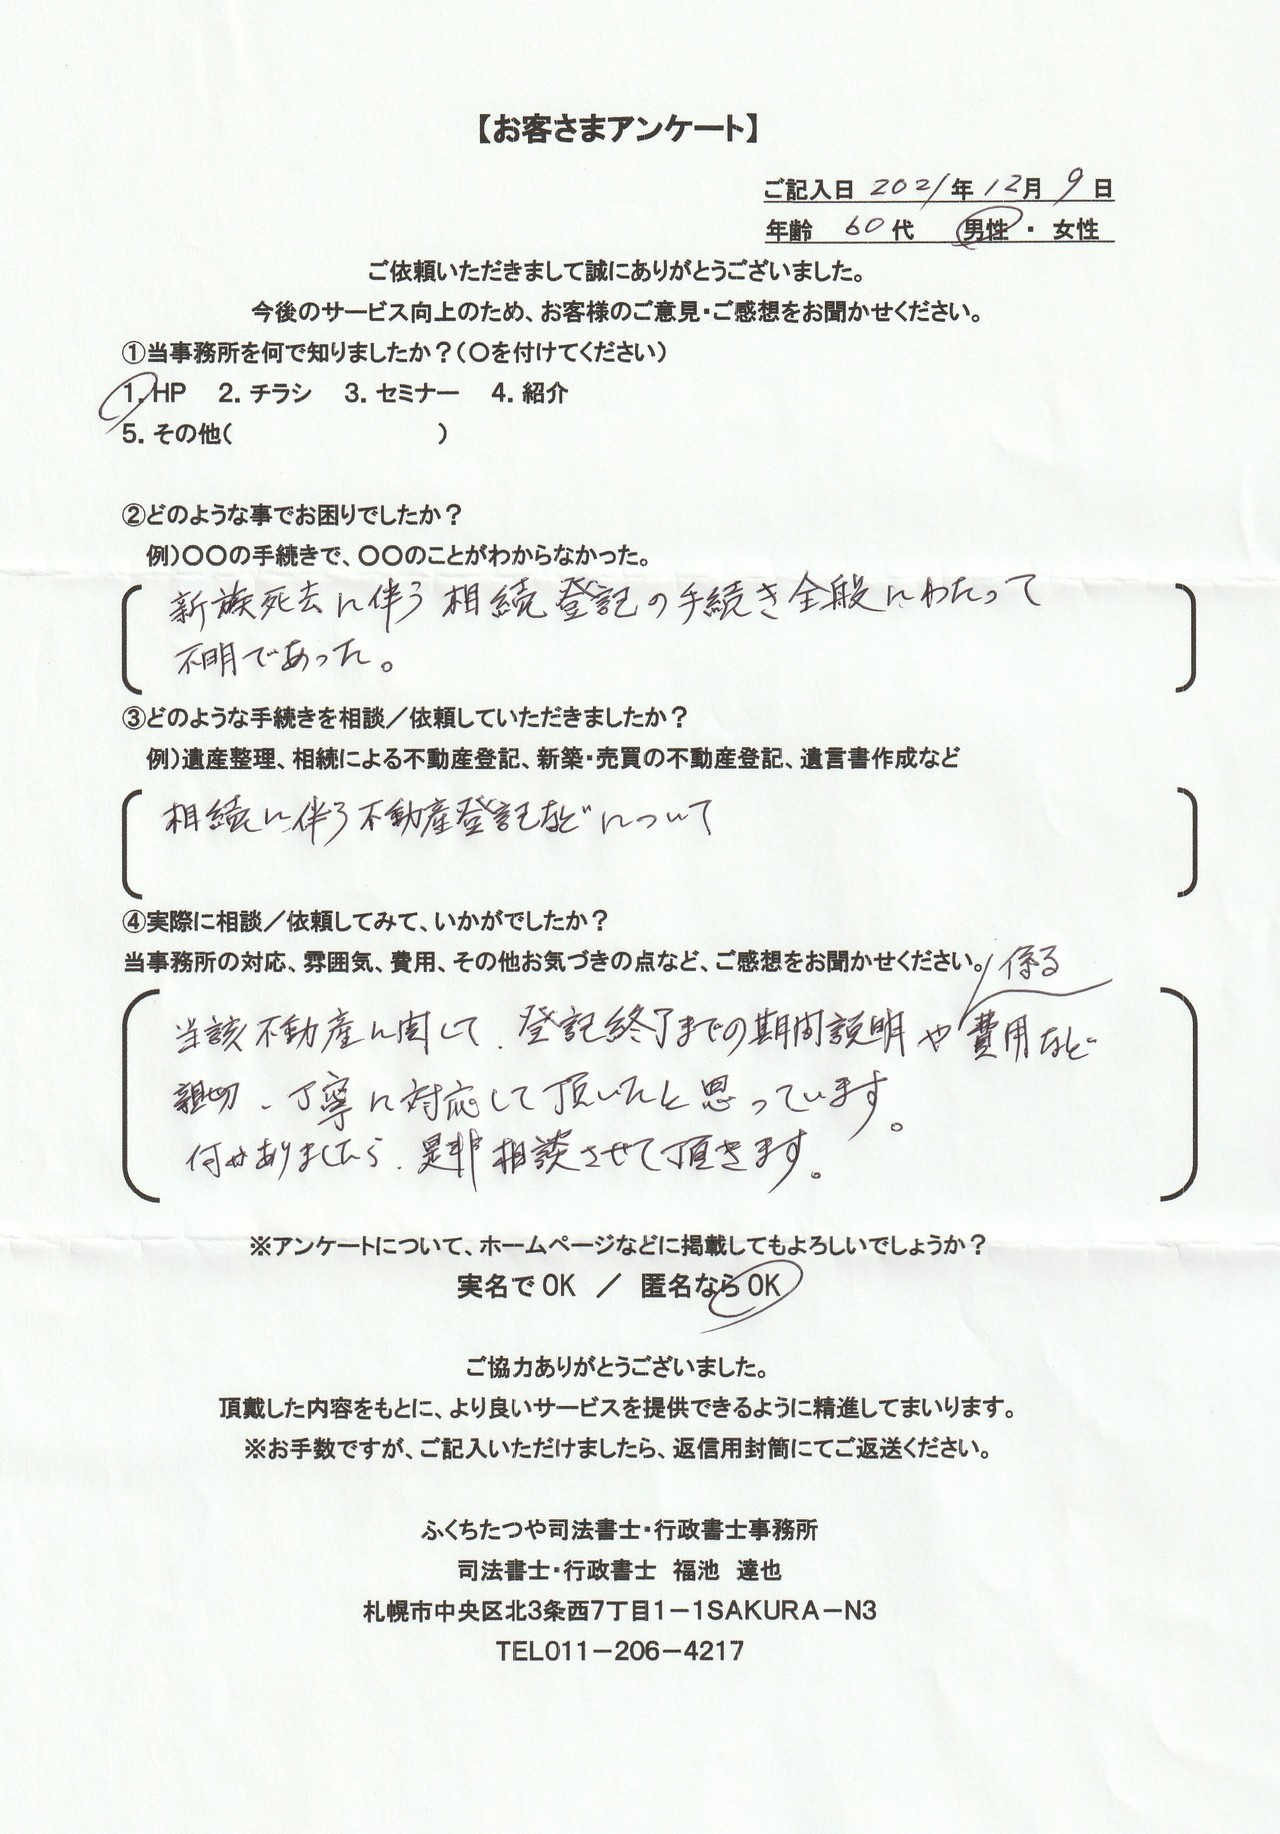 【お客さまアンケート】
ご記入日 2021年 12月 9日
年齢 60代 男性・女性
ご依頼いただきまして誠にありがとうございました。
今後のサービス向上のため、お客様のご意見・ご感想をお聞かせください。
①当事務所を何で知りましたか？（〇を付けてください）
1. HP 2. チラシ 3. セミナー 4. 紹介
5. その他（ ）
②どのような事でお困りでしたか？
例）〇〇の手続きで、〇〇のことがわからなかった。
新族死去に伴う相続登記の手続き全般にわたって
不明であった。
③どのような手続きを相談／依頼していただきましたか？
例）遺産整理、相続による不動産登記、新築・売買の不動産登記、遺言書作成など
相続に伴う不動産登記などについて
④実際に相談／依頼してみて、いかがでしたか？
当事務所の対応、雰囲気、費用、その他お気づきの点など、ご感想をお聞かせください。
係る
当該不動産に関して、登記終了までの期間説明や費用など
親切、丁寧に対応して頂いたと思っています。
何かありましたら、是非相談させて頂きます。
※アンケートについて、ホームページなどに掲載してもよろしいでしょうか？
実名でOK ／ 匿名ならOK
ご協力ありがとうございました。
頂戴した内容をもとに、より良いサービスを提供できるように精進してまいります。
※お手数ですが、ご記入いただけましたら、返信用封筒にてご返送ください。
ふくちたつや司法書士・行政書士事務所
司法書士・行政書士 福池 達也
札幌市中央区北3条西7丁目1－1SAKURA－N3
TEL011－206－4217